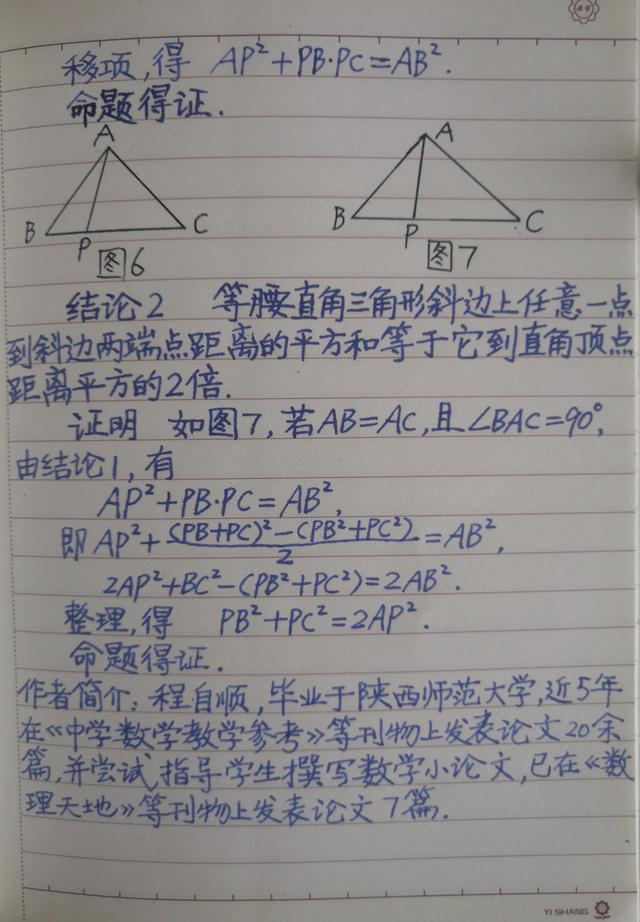 移项,得 AP²+PB·PC=AB².
命题得证.
A
B
P
C
图6
A
B
P
C
图7
结论2 等腰直角三角形斜边上任意一点
到斜边两端点距离的平方和等于它到直角顶点
距离平方的2倍.
证明 如图7,若AB=AC,且∠BAC=90°,
由结论1,有
AP²+PB·PC=AB²,
即AP²+((PB+PC)²-(PB²+PC²))/2=AB²,
2AP²+BC²-(PB²+PC²)=2AB².
整理,得 PB²+PC²=2AP².
命题得证.
作者简介:程自顺,毕业于陕西师范大学,近5年
在《中学数学教学参考》等刊物上发表论文20余
篇,并尝试指导学生撰写数学小论文,已在《数
理天地》等刊物上发表论文7篇.
YI SHANG